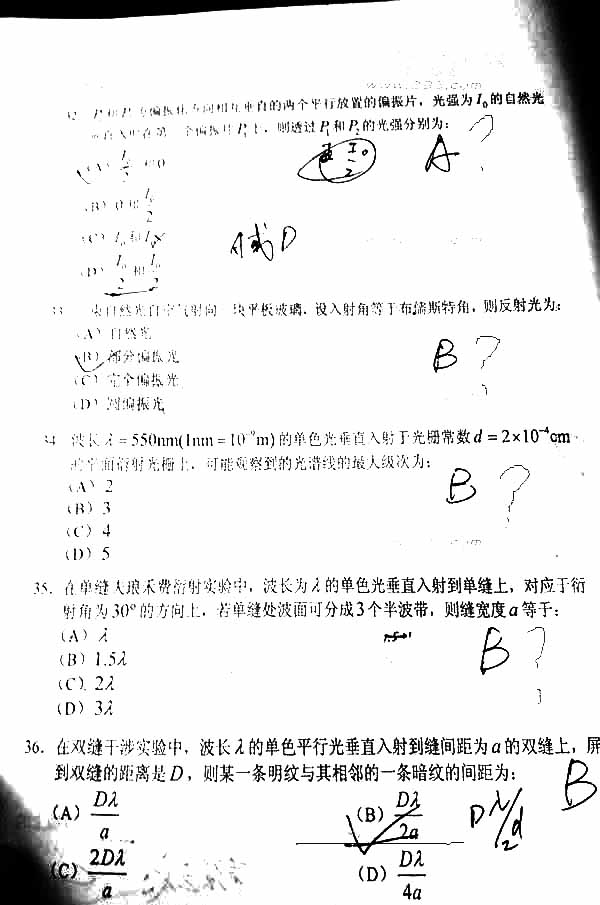 www.
32. P₁和P₂为偏振化方向相互垂直的两个平行放置的偏振片，光强为I₀的自然光
垂直入射在第一个偏振片P₁上，则透过P₁和P₂的光强分别为：
I₀/2 A ?
(A) I₀/2 和0
(B) 0和 I₀/2
(C) I₀和I₀ A或D
(D) I₀/2 和 I₀/2
33. 一束自然光自空气射向一块平板玻璃，设入射角等于布儒斯特角，则反射光为：
(A) 自然光
(B) 部分偏振光 B ?
(C) 完全偏振光
(D) 圆偏振光
34. 波长λ＝550nm(1nm＝10⁻⁹m)的单色光垂直入射于光栅常数d＝2×10⁻⁴cm
的平面衍射光栅上，可能观察到的光谱线的最大级次为：
(A) 2 B ?
(B) 3
(C) 4
(D) 5
35. 在单缝夫琅禾费衍射实验中，波长为λ的单色光垂直入射到单缝上，对应于衍
射角为30°的方向上，若单缝处波面可分成3个半波带，则缝宽度a等于：
(A) λ B ?
(B) 1.5λ
(C) 2λ
(D) 3λ
36. 在双缝干涉实验中，波长λ的单色平行光垂直入射到缝间距为a的双缝上，屏
到双缝的距离是D，则某一条明纹与其相邻的一条暗纹的间距为：
(A) Dλ/a (B) Dλ/2a Dλ/2d B
(C) 2Dλ/a (D) Dλ/4a